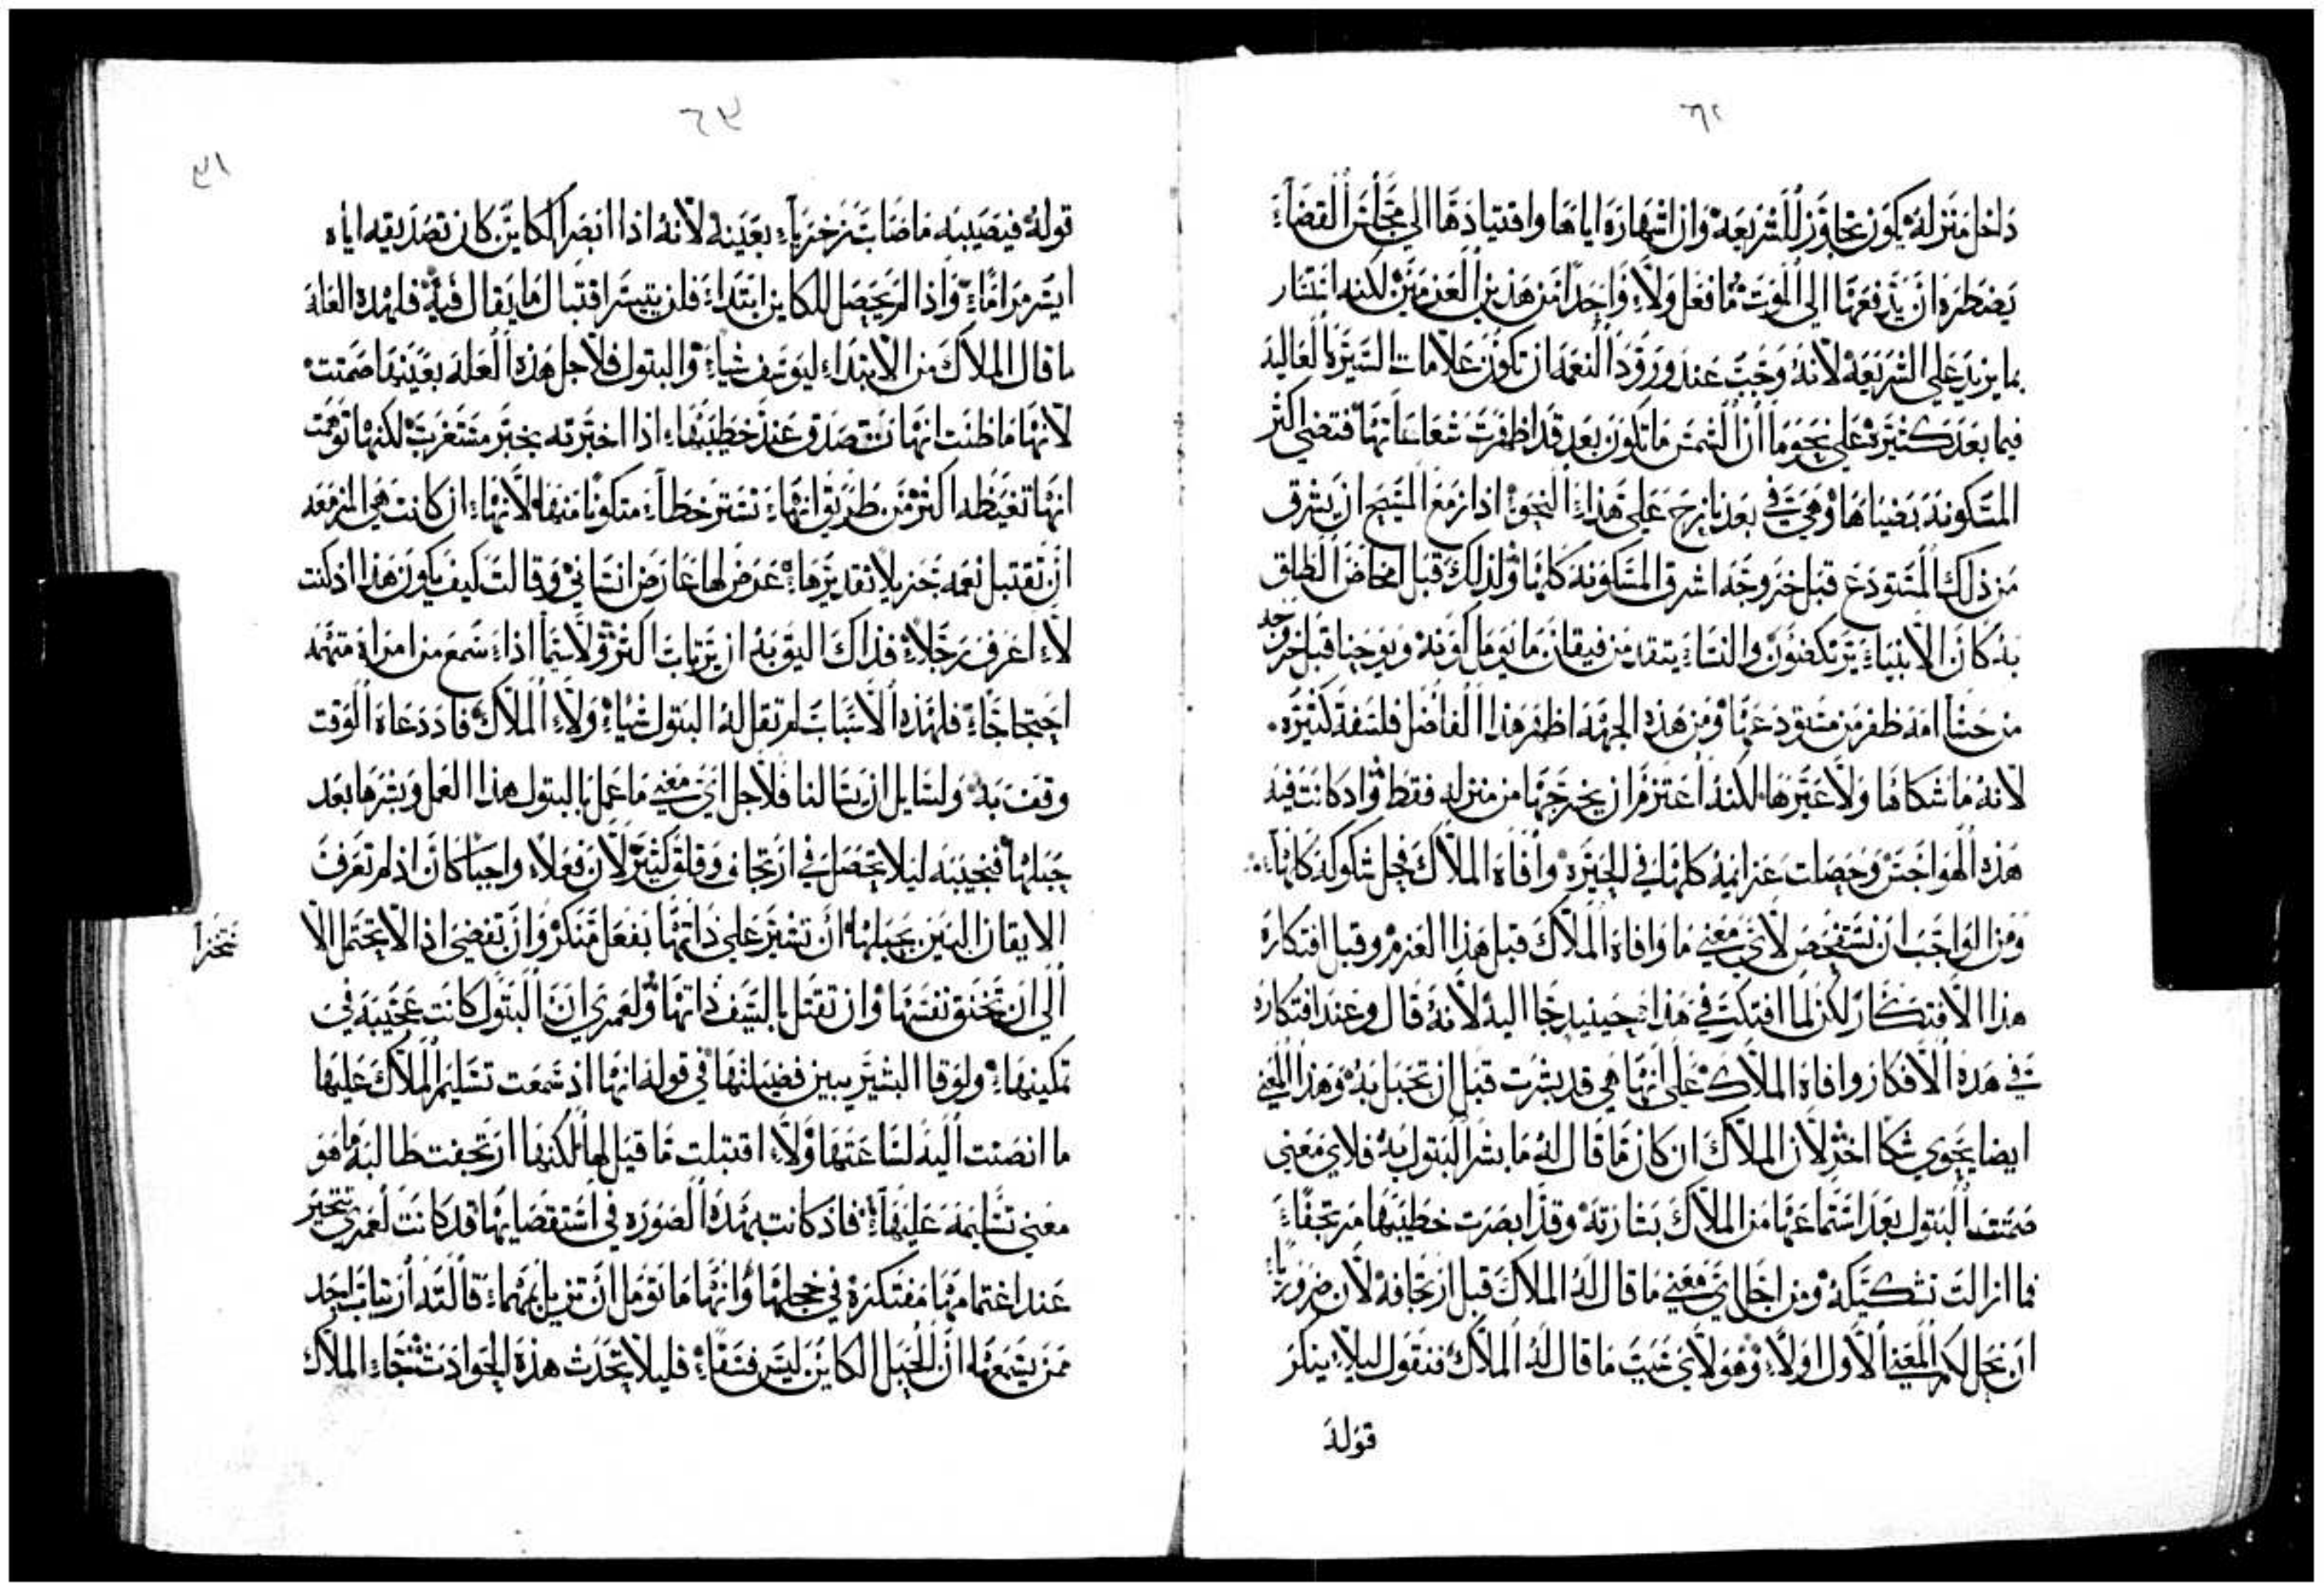 ٦٢
داخل منزله يكون تجاوز للشريعه وان اشهاره اياها واقتيادها الي مجلس القضاء
يضطره ان يدفعها الي الموت ما فعل ولا واحدا من هذين العزمين لكنه انتشار
بما يزيد علي الشريعه لانه وجب عند ورود النعمه ان تكون علامات السيره العاليه
فيما بعد كثيره علي نحو ما ان الشمس ما تكون بعد قد اظهرت شعاعاتها فتضي اكثر
المسكونه بضياها وهي في بعد نازح علي هذا النحو اذ ازمع المسيح ان يشرق
من ذلك المستودع قبل خروجه اشرق المسكونه كلها ولذلك قبل امخاض الطلق
به كان الانبياء يرتكضون والنساء يتقدمن فيقلن ما يومل كونه ويوحنا قبل خروجه
من حشا امه ظفر من مستودعها ومن هذه الجهه اظهر هذا الفاضل فلسفة كثيره.
لانه ما شكاها ولا عيرها لكنه اعتزم ان يخرجها من منزله فقط واد كانت فيه
هذه الهواجس وحصلت عزايمه كلها في الحيره وافاه الملاك فحل شكوكه كلها
ومن الواجب ان نستفحص لاي معني ما وافاه الملاك قبل هذا العزم وقبل افتكاره
هذا الافتكار لكن لما افتكر في هذا حينيد جا اليه لانه قال وعند افتكاره
في هده الافكار وافاه الملاك علي انها هي قد بشرت قبل ان تحبل به وهذا المعني
ايضا يحوي شكا اخر لان الملاك ان كان ما قال له ما بشر البتول به فلاي معني
صمتت البتول بعد استماعها من الملاك بشارته وقد ابصرت خطيبها مرتجفا
فما ازالت تشككه ومن اجل اي معني ما قال له الملاك قبل ارتجافه لان ضروريا
ان نحل لكم المعني الاول اولا وهو لاي سبب ما قال له الملاك فنقول ليلا ينكر
قوله
٦٣
٣١
قوله فيصيبه ما صاب زخرياء بعينه لانه اذا ابصر الكاين كان تصديقه اياه
ايسر مراما واذا لم يحصل للكاين ابتداء فلن يتيسر اقتبال ما يقال فيه فلهده العله
ما قال الملاك من الابتداء ليوسف شياء والبتول فلاجل هذه العله بعينها صمتت
لانها ما ظنت انها تتصدق عند خطيبها اذا اخبرته بخبر مستغرب لكنها توهمت
انها تغيظه اكثر من طريق انها تستر خطاء متكونا منها لانها ان كانت هي المزمعه
ان تقتبل نعمه جزيلا تقديرها عرض لها عارض انساني وقالت كيف يكون هذا اذ كنت
لا اعرف رجلا فذاك اليق به ان يرتاب اكثر ولا سيما اذا سمع من امراه متهمه
احتجاجا فلهذه الاسباب لم تقل له البتول شياء ولا الملاك فاد دعاه الوقت
وقف به ولسايل ان يسالنا فلاجل اي معني ما عمل بالبتول هذا العمل وبشرها بعد
حبلها فنجيبه ليلا تحصل في ارتجاف وقلق كثير لان فعلا واجبا كان اذ لم تعرف
الايقان البين بحبلها ان تشير علي ذاتها بفعل منكر وان تفضي اذ لا تحتمل الا
نحرا
الي ان تخنق نفسها وان تقتل بالسيف ذاتها ولعمري ان البتول كانت عجيبه في
تمكينها ولوقا البشير يبين فضيلتها في قوله انها اذ سمعت تسليم الملاك عليها
ما انصتت اليه لساعتها ولا اقتبلت ما قيل لها لكنها ارتجفت طالبه ما هو
معني تسليمه عليها فاذ كانت بهذه الصوره في استقصايها قد كانت لعمري تتحير
عند اغتمامها مفتكره في خجلها وانها ما تومل ان تزيل بمهما قالته ارتياب احد
ممن يسمعها ان الحبل الكاين ليس فسقا فليلا تحدث هذه الحوادث جاء الملاك